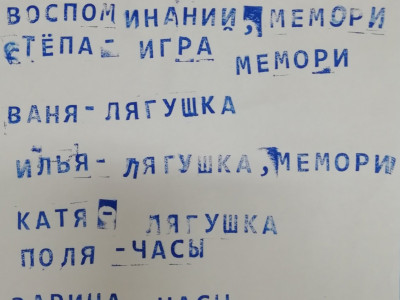 ВОСПОМИНАНИИ, МЕМОРИ
СТЁПА - ИГРА МЕМОРИ
ВАНЯ - ЛЯГУШКА
ИЛЬЯ - ЛЯГУШКА, МЕМОРИ
КАТЯ - ЛЯГУШКА
ПОЛЯ - ЧАСЫ